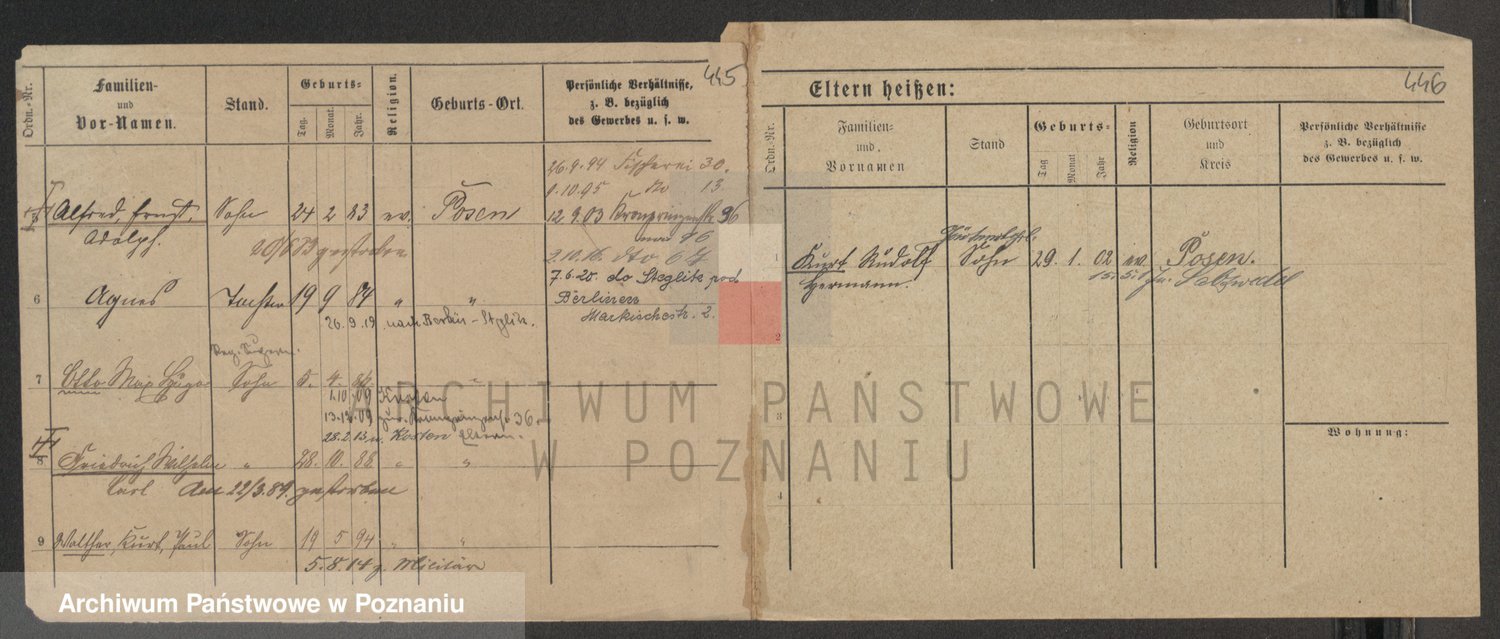 445
Ordn.-Nr.
Familien-
und
Vor-Namen.
Stand.
Geburts-
Tag.
Monat.
Jahr.
Religion.
Geburts-Ort.
Persönliche Verhältnisse,
z. B. bezüglich
des Gewerbes u. s. w.
26.9.94 Fischerei 30.
9.10.95 do 13.
5 Alfred, Ernst, Sohn 24 2 83 ev. Posen 12.9.03 Kronprinzenstr 96
Adolph.
20/6 83 gestorben
2.10.16. dto
7.6.20. do Steglitz
6 Agnes Tochter 19 9 84 " "
Berlinen
26.9.19 nach Berlin-Steglitz.
Markischestr. 2.
7 Otto Max Hugo Sohn 5. 4. 86 "
1.10.09
13.12.09 36.
28.2.13 n. Kosten
8 Friedrich Wilhelm " 28. 10. 88 " "
Carl Am 22/3.89. gestorben
9 Walther, Kurt, Paul Sohn 19 5 94 " "
5.8.14 z. Militär
446
Eltern heißen:
Ordn.-Nr.
Familien-
und
Vornamen
Stand
Geburts-
Tag
Monat
Jahr
Religion
Geburtsort
und
Kreis
Persönliche Verhältnisse
z. B. bezüglich
des Gewerbes u. s. w.
1 Kurt Rudolf Sohn 29. 1. 02 ev. Posen.
Hermann. Salzwedel
2
3
4
Wohnung:
ARCHIWUM PAŃSTWOWE
W POZNANIU
Archiwum Państwowe w Poznaniu